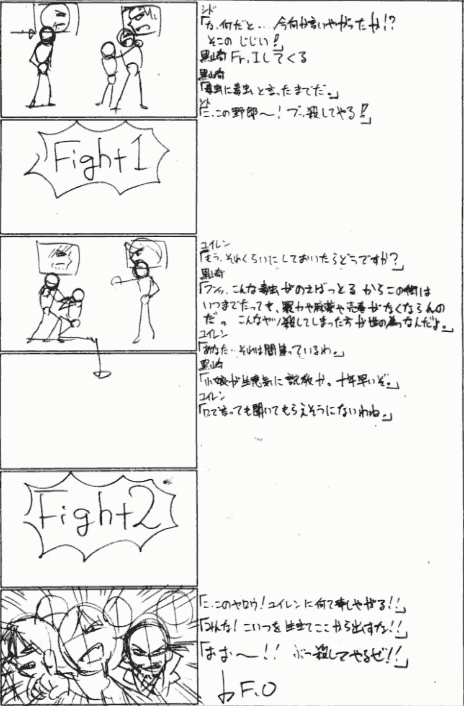 シド
「な、何だと… 今何か言いやがったか!?
そこの じじい!」
黒崎 Fr.Iしてくる
黒崎
「毒虫に毒虫と言ったまでだ。」
シド
「こ、この野郎〜!ブッ殺してやる!!」
Fight 1
ユイレン
「もう、それくらいに しておいたらどうですか?」
黒崎
「フンッ、こんな毒虫がのさばっとる からこの街は
いつまでたっても、暴力や麻薬や売春がなくならんの
だ。 こんなヤツ殺してしまった方が世の為なんだよ。」
ユイレン
「あなた…それは間違っているわ。」
黒崎
「小娘が生意気に説教か。十年早いぞ。」
ユイレン
「口で言っても聞いてもらえそうにないわね。」
Fight 2
「こ、このヤロウ!ユイレンに何て事しやがる!!」
「こいつを生きてここから出すな!!」
「おお〜!! ぶっ殺してやるぜ!!」
F.O